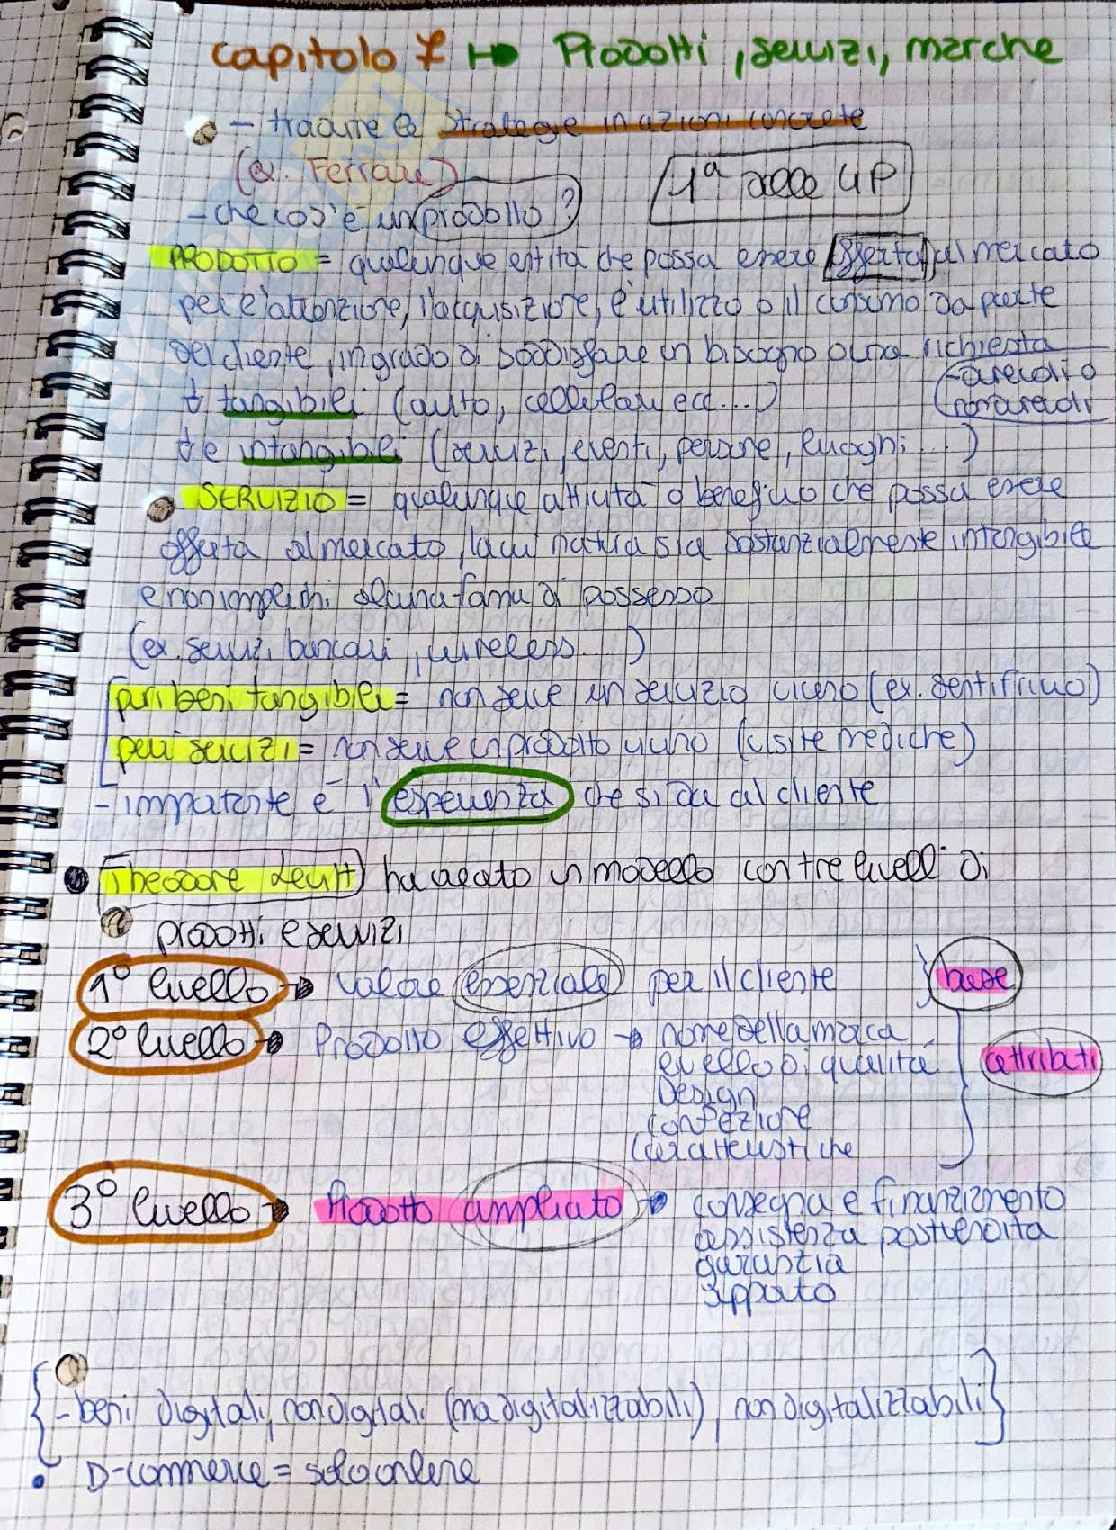 capitolo 7 → Prodotti, servizi, marche
- tradurre le strategie in azioni concrete
(ex. Ferrari)
1ª delle 4P
- che cos'è un prodotto?
PRODOTTO = qualunque entità che possa essere offerta al mercato
per l'attenzione, l'acquisizione, l'utilizzo o il consumo da parte
del cliente, in grado di soddisfare un bisogno o una richiesta
tangibili (auto, cellulari ecc...)
e intangibili (servizi, eventi, persone, luoghi...)
SERVIZIO = qualunque attività o beneficio che possa essere
offerta al mercato, la cui natura sia sostanzialmente intangibile
e non implichi alcuna forma di possesso
(ex. servizi bancari, wireless...)
puri beni tangibili = non serve un servizio vicino (ex. dentifricio)
puri servizi = non serve un prodotto vicino (visite mediche)
- importante è l'esperienza che si dà al cliente
Theodore Levitt ha creato un modello con tre livelli di
prodotti e servizi
1° livello → valore essenziale per il cliente } base
2° livello → Prodotto effettivo → nome della marca
livello di qualità
attributi
Design
confezione
caratteristiche
3° livello → Prodotto ampliato → consegna e finanziamento
assistenza postvendita
garanzia
supporto
- beni digitali, non digitali (ma digitalizzabili), non digitalizzabili
• D-commerce = solo online